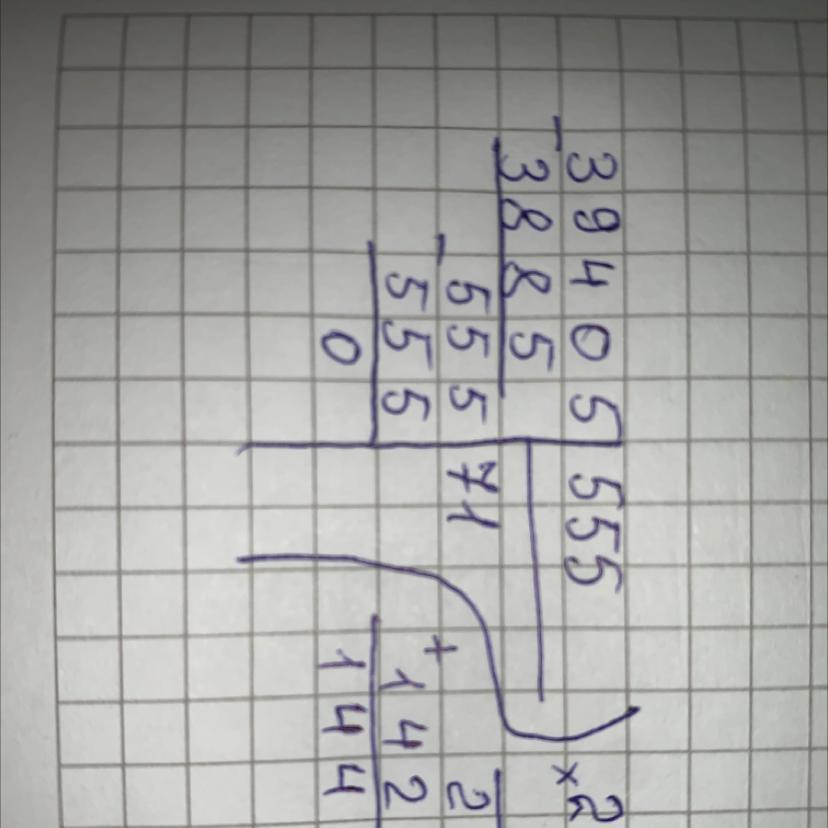 39405 555 ×2
- 3885
- 555 71 2
555 + 142
0 144